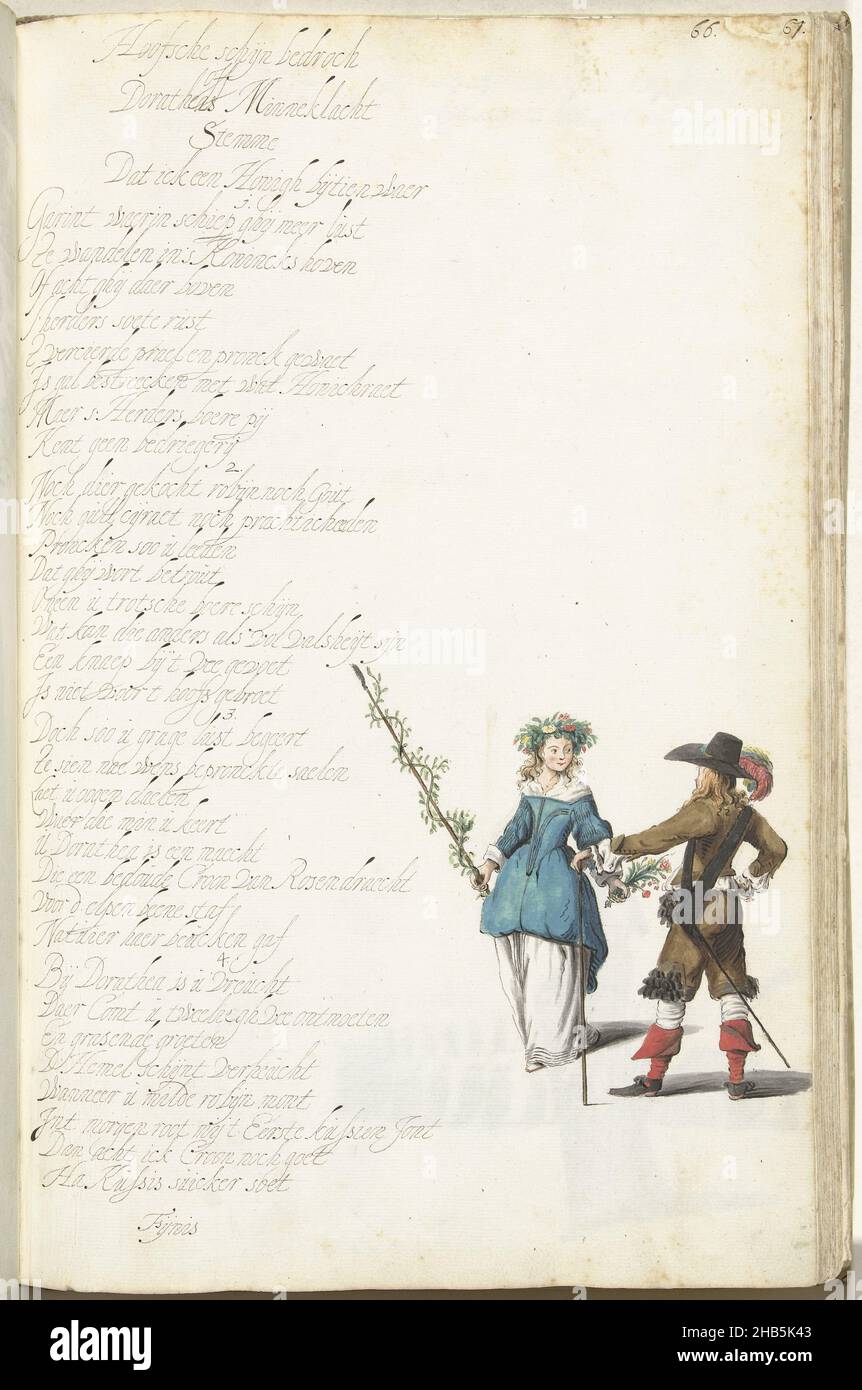 66. 67.
Hoofsche schijn bedroch
of
Doratheas Minneklacht
Stemme
Dat ick een Honigh bijtien waer
Garint waerin schiep ghij meer lust
Te wandelen in's Konincks hoven
Of acht ghij daer boven
s herders soete rust
T vercierde prael en pronck gewaet
Is gal bestreecken met wat Honichraet
Maer s Herders boere pij
Kent geen bedriegerij
2
Noch dier gekocht robijn noch Gout
Noch cijraet noch pracht
Proncken soo u leeden
Dat ghij wort betrout
O neen u trotsche boere schijn
Wat kan die anders als vol valsheijt sijn
Een knaep bij't vee gevoet
Is niet voor t hoofs gebroet
3.
Doch soo u grage lust begeert
Te sien nae wens bepronckte saelen
Laet u oogen daelen
Waer die men u keert
U Dorathea is een maecht
Die een bedoude Croon van Rosen draecht
Voor d elpen beene staf
Natuer haer gaf
4.
Bij Dorathea is u vreucht
Daer Comt u vee ontmoeten
En grasende groeten
De Hemel schijnt verheucht
Wanneer u malde robijn mont
Int morgen root mij t Eerste kussien jont
Dan acht ick Croon noch goet
Ha Kussis suicker soet
Fijnis
alamy
Image ID: 2HB5K43
www.alamy.com